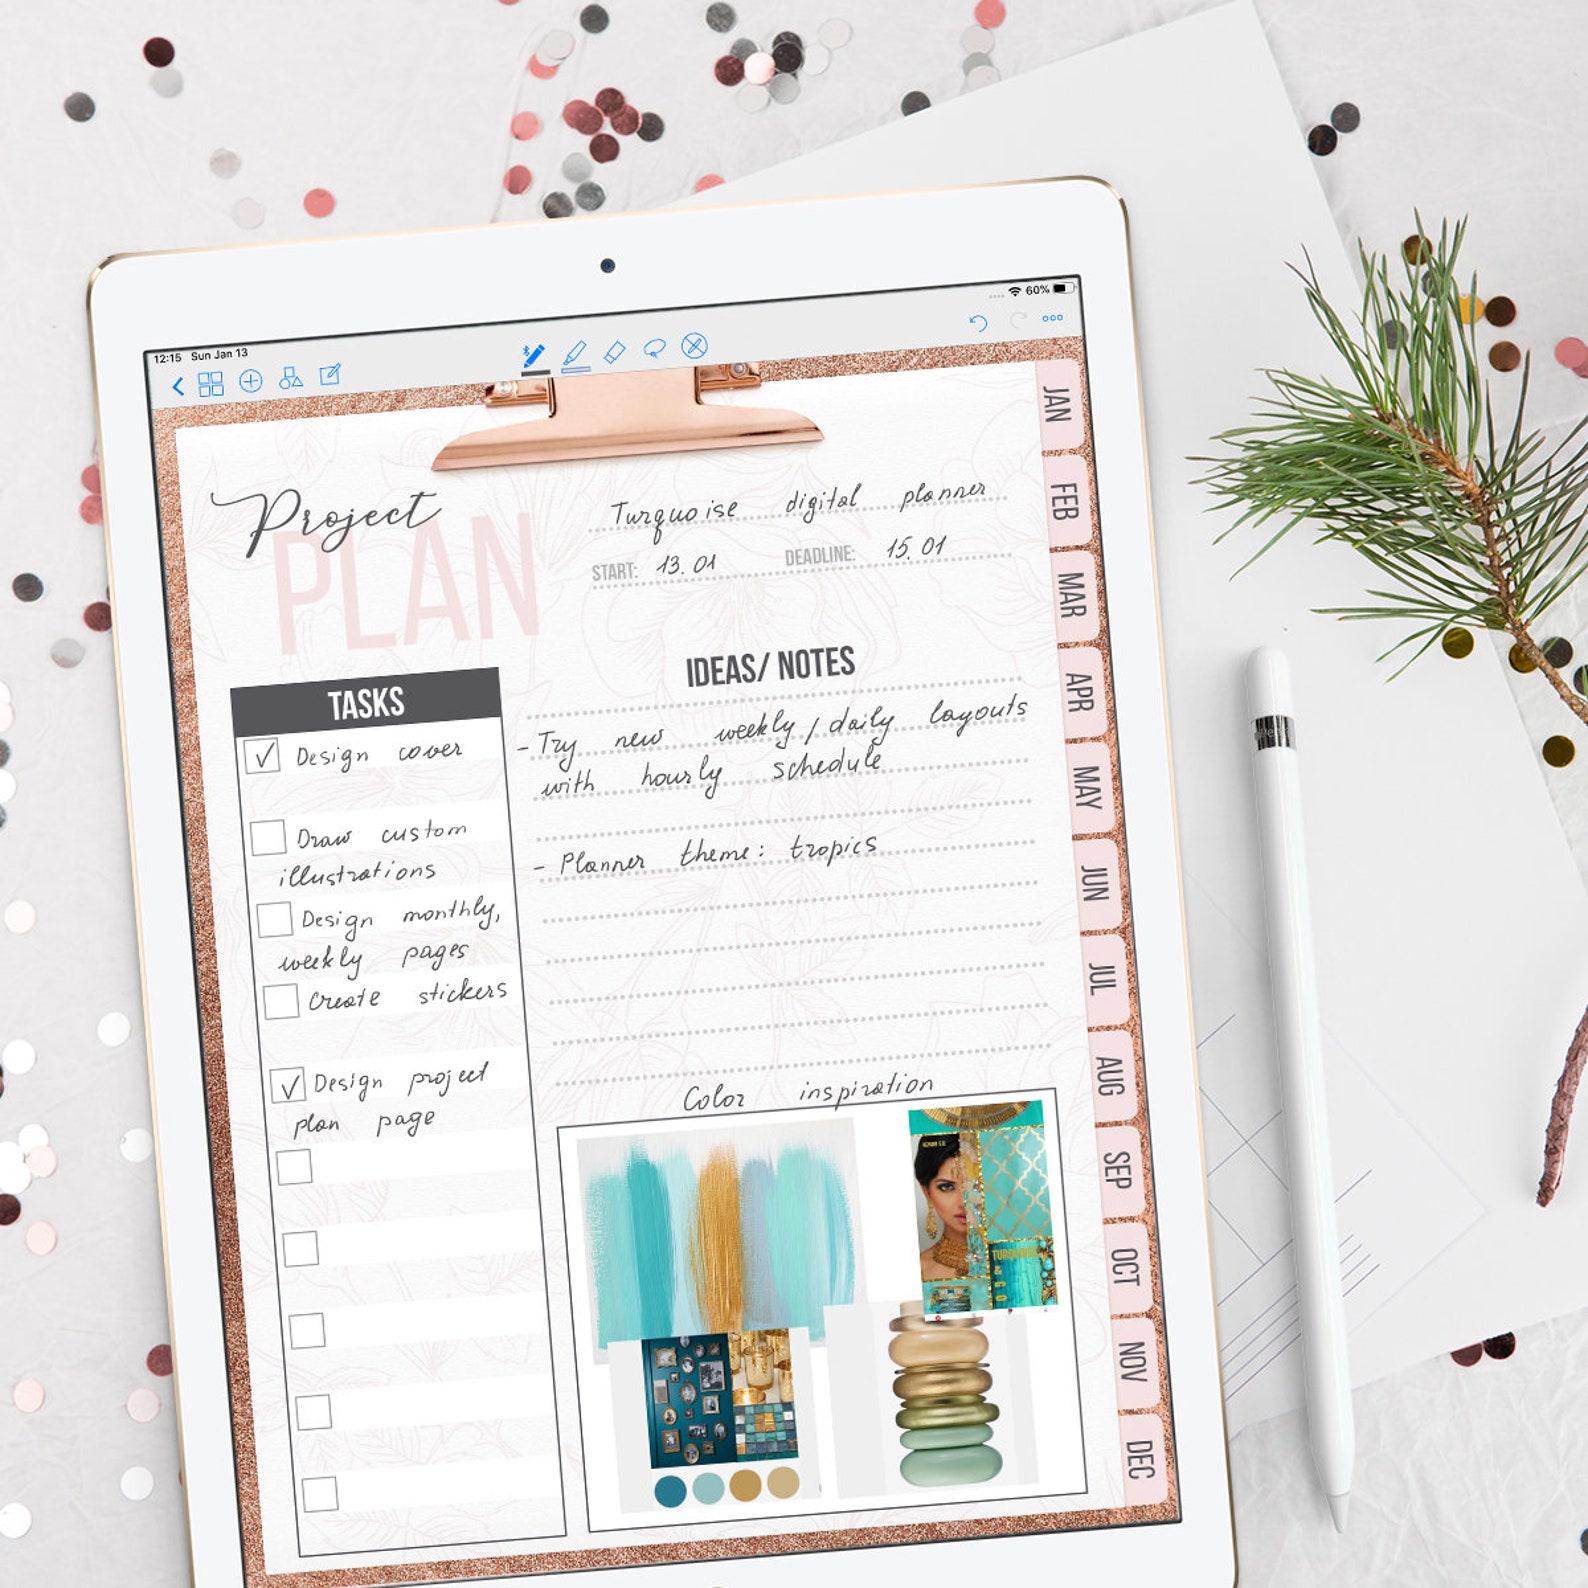 12:15 Sun Jan 13
60%
Project
PLAN
Turquoise digital planner
START: 13.01 DEADLINE: 15.01
TASKS
Design cover
Draw custom
illustrations
Design monthly,
weekly pages
Create stickers
Design project
plan page
IDEAS/ NOTES
- Try new weekly/daily layouts
with hourly schedule
- Planner theme: tropics
Color inspiration
JAN
FEB
MAR
APR
MAY
JUN
JUL
AUG
SEP
OCT
NOV
DEC